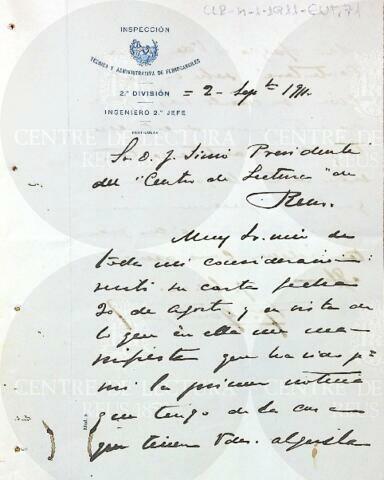 INSPECCIÓN
TÉCNICA Y ADMINISTRATIVA DE FERROCARRILES
2.ª DIVISIÓN
INGENIERO 2.º JEFE
PARTICULAR
= 2 - Sepbre 1911.
Sr. D. J. Simó Presidente
del "Centro de Lectura" de
Reus.
Muy Sr. mio de
toda mi consideración:
recibí su carta fecha
30 de agosto y en vista de
lo que en ella me ma-
nifiesta que ha sido pa
mi la primera noticia
que tengo de la casa
que tienen Vdes. alquila
CENTRE DE LECTURA
REUS 1859